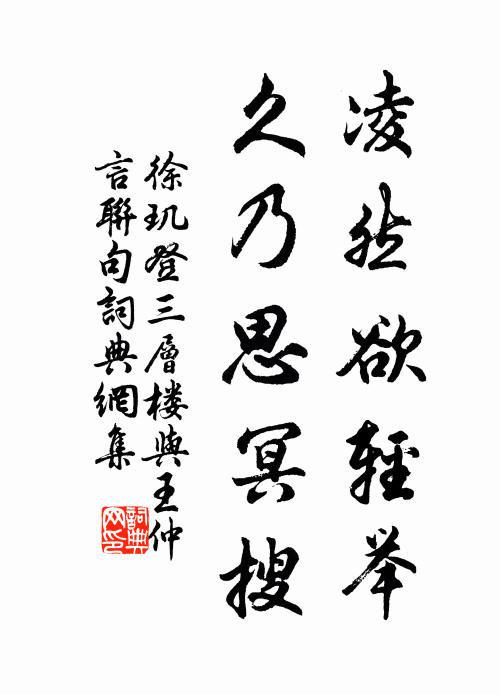 凌然欲輕举
久乃思冥搜
徐玑登三層楼與王仲
言聯句詞典網集
詞典
网印